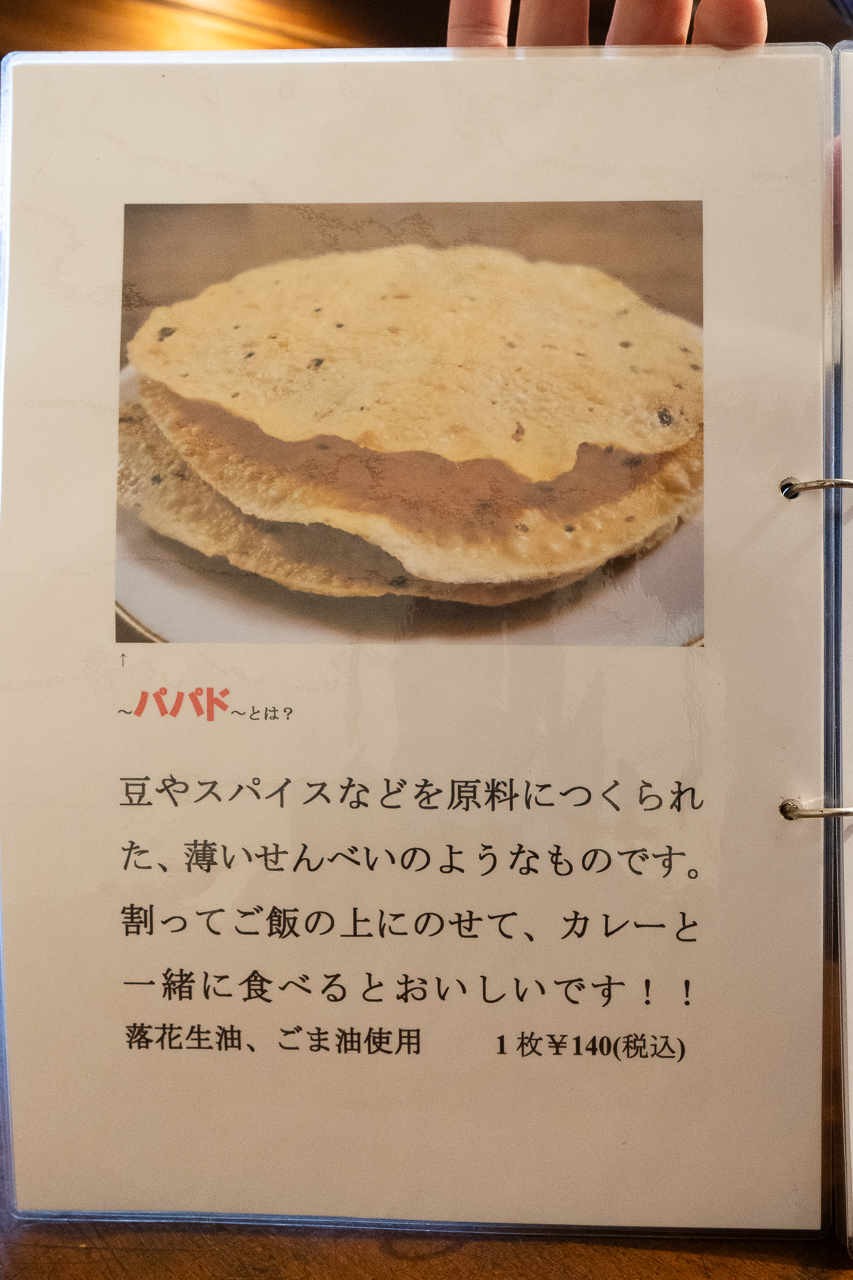 ↑
~パパド~とは？
豆やスパイスなどを原料につくられ
た、薄いせんべいのようなものです。
割ってご飯の上にのせて、カレーと
一緒に食べるとおいしいです！！
落花生油、ごま油使用 1枚￥140(税込)